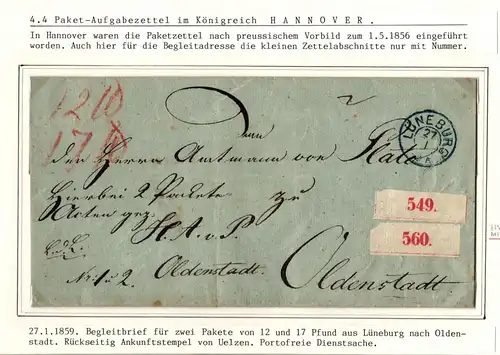 4.4 Paket-Aufgabezettel im Königreich HANNOVER.
In Hannover waren die Paketzettel nach preussischem Vorbild zum 1.5.1856 eingeführt
worden. Auch hier für die Begleitadresse die kleinen Zettelabschnitte nur mit Nummer.
12
17
2
LÜNEBURG
27
1
den Herrn Amtmann von
Hierbei 2 Packete zu
Acten gez.
549.
560.
H. A. v. P
Oldenstadt.
Nr: 1 u 2.
Oldenstadt
27.1.1859. Begleitbrief für zwei Pakete von 12 und 17 Pfund aus Lüneburg nach Olden-
stadt. Rückseitig Ankunftstempel von Uelzen. Portofreie Dienstsache.